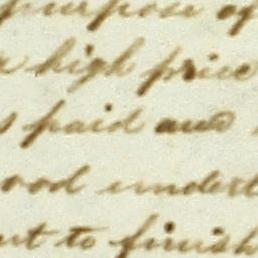 purpose of
high price
paid and
ood underst
ut to finish